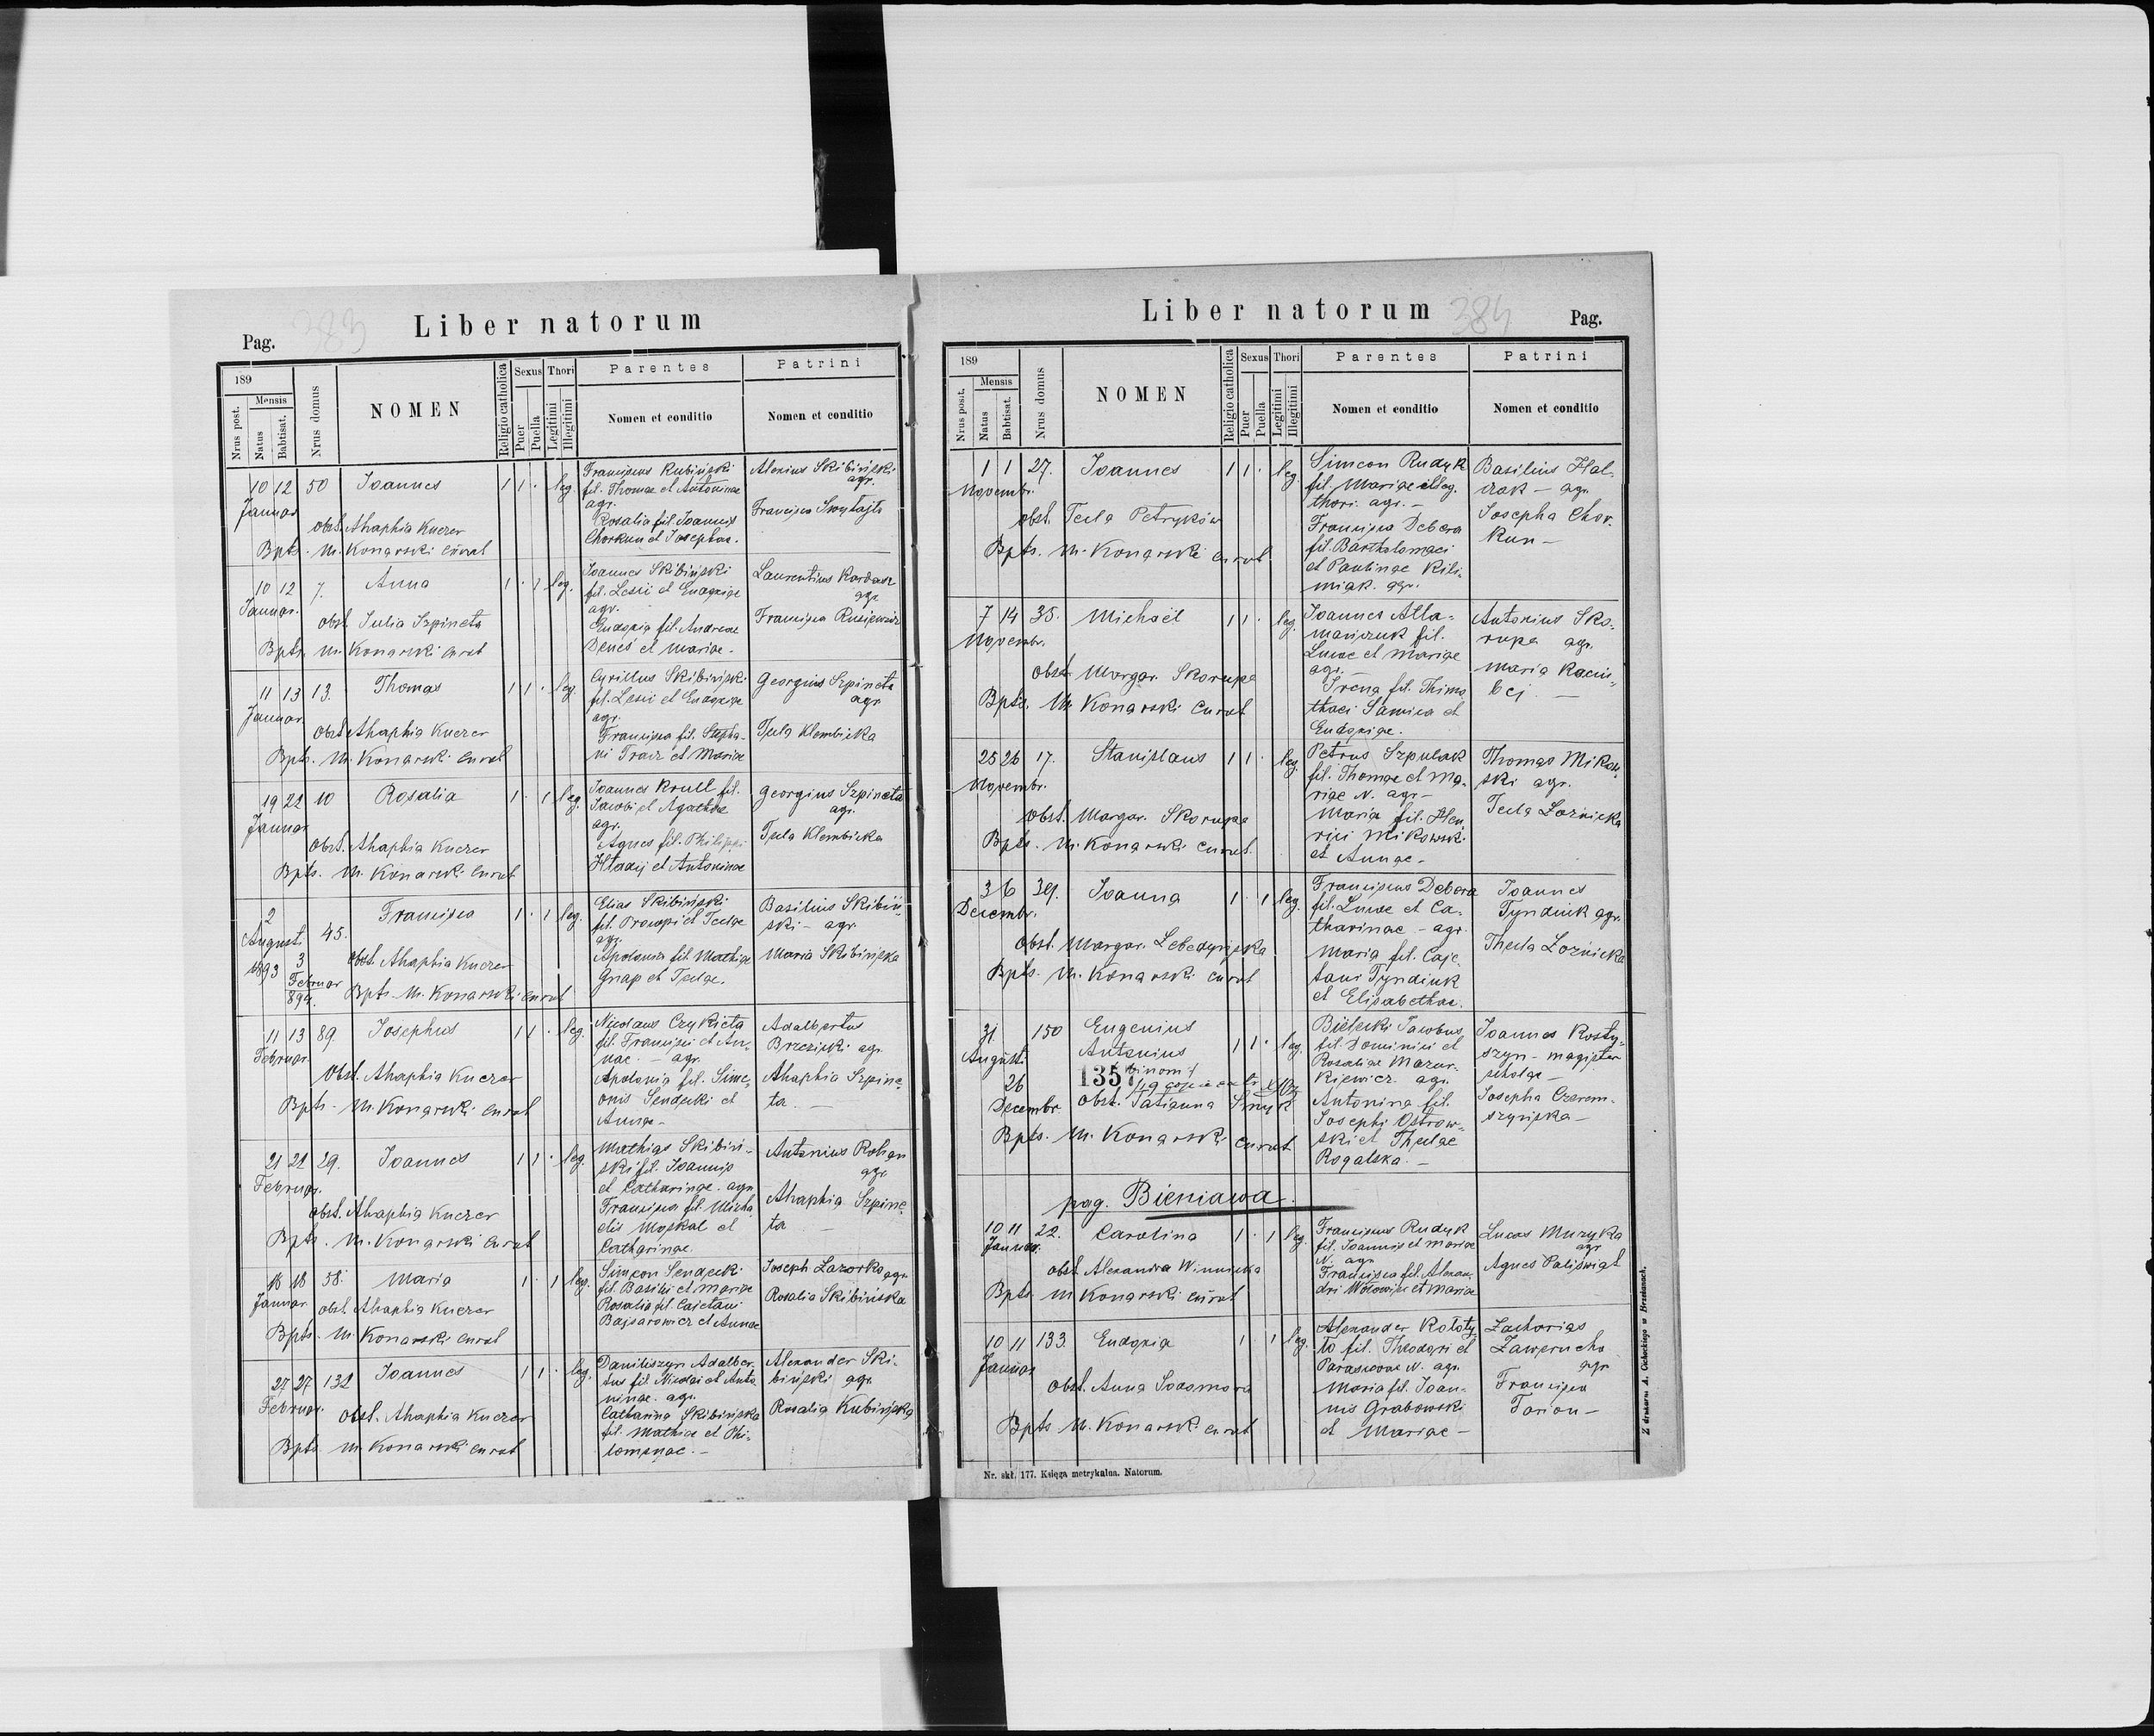 383
Liber natorum
Pag.
189
Mensis
Nrus post.
Natus
Babtisat.
Nrus domus
NOMEN
Religio catholica
Sexus
Puer
Puella
Thori
Legitimi
Illegitimi
Parentes
Nomen et conditio
Patrini
Nomen et conditio
10 12 50 Joannes 1 1 · leg.
Januar
obst. Ahaphia Kuczer
Bpts. M. Konarski curat
Franciscus Kubiński
fil. Thomae et Antoninae
agr.
Rosalia fil. Joannis
Chorkun et Josephae.
Alexius Skibiński
agr.
Francisca Swytajło
10 12 7. Anna 1 · 1 leg.
Januar.
obst. Julia Szpineta
Bpts. M. Konarski curat
Joannes Skibiński
fil. Lesii et Eudoxiae
agr.
Eudoxia fil. Andreae
Deneś et Mariae.
Laurentius Kardasz
agr.
Francisca Rusiewicz
11 13 13. Thomas 1 1 · leg.
Januar
obst. Ahaphia Kuczer
Bpts. M. Konarski curat
Cyrillus Skibiński
fil. Lesii et Eudoxiae
agr.
Francisca fil. Stepha-
ni Tracz et Mariae
Georgius Szpineta
agr.
Tecla Klembicka
19 22 10 Rosalia 1 · 1 leg.
Januar
obst. Ahaphia Kuczer
Bpts. M. Konarski curat
Joannes Krull fil.
Jacobi et Agathae
agr.
Agnes fil. Philippi
Hładij et Antoninae
Georgius Szpineta
agr.
Tecla Klembicka
2
Augusti
1893
45. Francisca 1 · 1 leg.
3
Februar
894.
obst. Ahaphia Kuczer
Bpts. M. Konarski curat
Elias Skibiński
fil. Procopi et Teclae
agr.
Apolonia fil. Mathiae
Gnap et Teclae.
Basilius Skibiń-
ski - agr.
Maria Skibińska
11 13 89. Josephus 1 1 · leg.
Februar
Obst. Ahaphia Kuczer
Bpts. M. Konarski curat
Nicolaus Czykieta
fil. Francisci et An-
nae. - agr.
Apolonia fil. Sime-
onis Sendecki et
Annae -
Adalbertus
Brzezicki agr.
Ahaphia Szpine-
ta. -
21 21 29. Joannes 1 1 · leg.
Februar.
obst. Ahaphia Kuczer
Bpts. M. Konarski curat
Mathias Skibiń-
ski fil. Joannis
et Catharinae. agr.
Francisca fil. Micha-
elis Moskal et
Catharinae.
Antonius Rohan
agr.
Ahaphia Szpine-
ta -
18 18 58. Maria 1 · 1 leg.
Januar
obst. Ahaphia Kuczer
Bpts. M. Konarski curat
Simeon Sendecki
fil. Basilii et Mariae
Rosalia fil. Cajetani
Bajsarowicz et Annae
Joseph Lazorko agr.
Rosalia Skibińska
27 27 132 Joannes 1 1 · leg.
Februar.
obst. Ahaphia Kuczer
Bpts. M. Konarski curat
Daniliszyn Adalber-
tus fil. Nicolai et Anto-
ninae. agr.
Catharina Skibińska
fil. Mathiae et Phi-
lomenae. -
Alexander Ski-
biński agr.
Rosalia Kubińska
Liber natorum
384
Pag.
189
Mensis
Nrus posit.
Natus
Babtisat.
Nrus domus
NOMEN
Religio catholica
Sexus
Puer
Puella
Thori
Legitimi
Illegitimi
Parentes
Nomen et conditio
Patrini
Nomen et conditio
1 1 27. Joannes 1 1 · leg.
Novembr.
obst. Tecla Petryków
Bpts. M. Konarski curat
Simeon Rudyk
fil. Mariae illeg.
thori. agr. -
Francisca Debera
fil. Bartholomaei
et Paulinae Kili-
miak. agr.
Basilius Hal-
czak - agr.
Josepha Chor-
kun -
7 14 35. Michaël 1 1 · leg.
Novembr.
obst. Margar. Skorupa
Bpts. M. Konarski curat
Joannes Ata-
mańczuk fil.
Lucae et Mariae
agr. -
Irena fil. Thimo-
thaei Samica et
Eudoxiae.
Antonius Sko-
rupa agr.
Maria
25 26 17. Stanislaus 1 1 · leg.
Novembr.
obst. Margar. Skorupa
Bpts. M. Konarski curat.
Petrus Szpulak
fil. Thomae et Ma-
riae N. agr -
Maria fil. Hen-
rici Mikowski
et Annae -
Thomas Mikow-
ski agr.
Tecla Łoźnicka
3 6 39. Joanna 1 · 1 leg.
Decembr.
obst. Margar. Lebedyńska
Bpts. M. Konarski curat
Franciscus Debera
fil. Lucae et Ca-
tharinae - agr.
Maria fil. Caje-
tani Tyndiuk
et Elisabethae.
Joannes
Tyndiuk agr.
Thecla Łoźnicka
31 150 Eugenius
Augusti Antonius 1 1 · leg.
binom.
1357
26
Decembr. obst. Tatianna Smyk
Bpts. M. Konarski curat
Bielecki Jacobus
fil. Dominici et
Rosaliae Mazur-
kiewicz. agr.
Antonina fil.
Josephi Ostrow-
ski et Theclae
Rogalska. -
Joannes Kosty-
szyn - magister
scholae -
Josepha Czerem-
szyńska -
pag. Bieniawa.
10 11 22. Carolina 1 · 1 leg.
Januar.
obst. Alexandra Winnicka
Bpts. M. Konarski curat
Franciscus Rudyk
fil. Joannis et Mariae
N. agr.
Francisca fil. Alexan-
dri Wołowiec et Mariae
Lucas Muzyka
agr
Agnes Paliświat
10 11 133. Eudoxia 1 · 1 leg.
Januar
Obst. Anna Sodomora
Bpts M. Konarski curat
Alexander Kołoty-
ło fil. Theodori et
Parascevae N. agr.
Maria fil. Joan-
nis Grabowski
et Mariae -
Zacharias
Zawerucha
agr
Francisca
Tarion -
Nr. skł. 177. Księga metrykalna. Natorum.
Z drukarni A. Cichockiego w Brzeżanach.